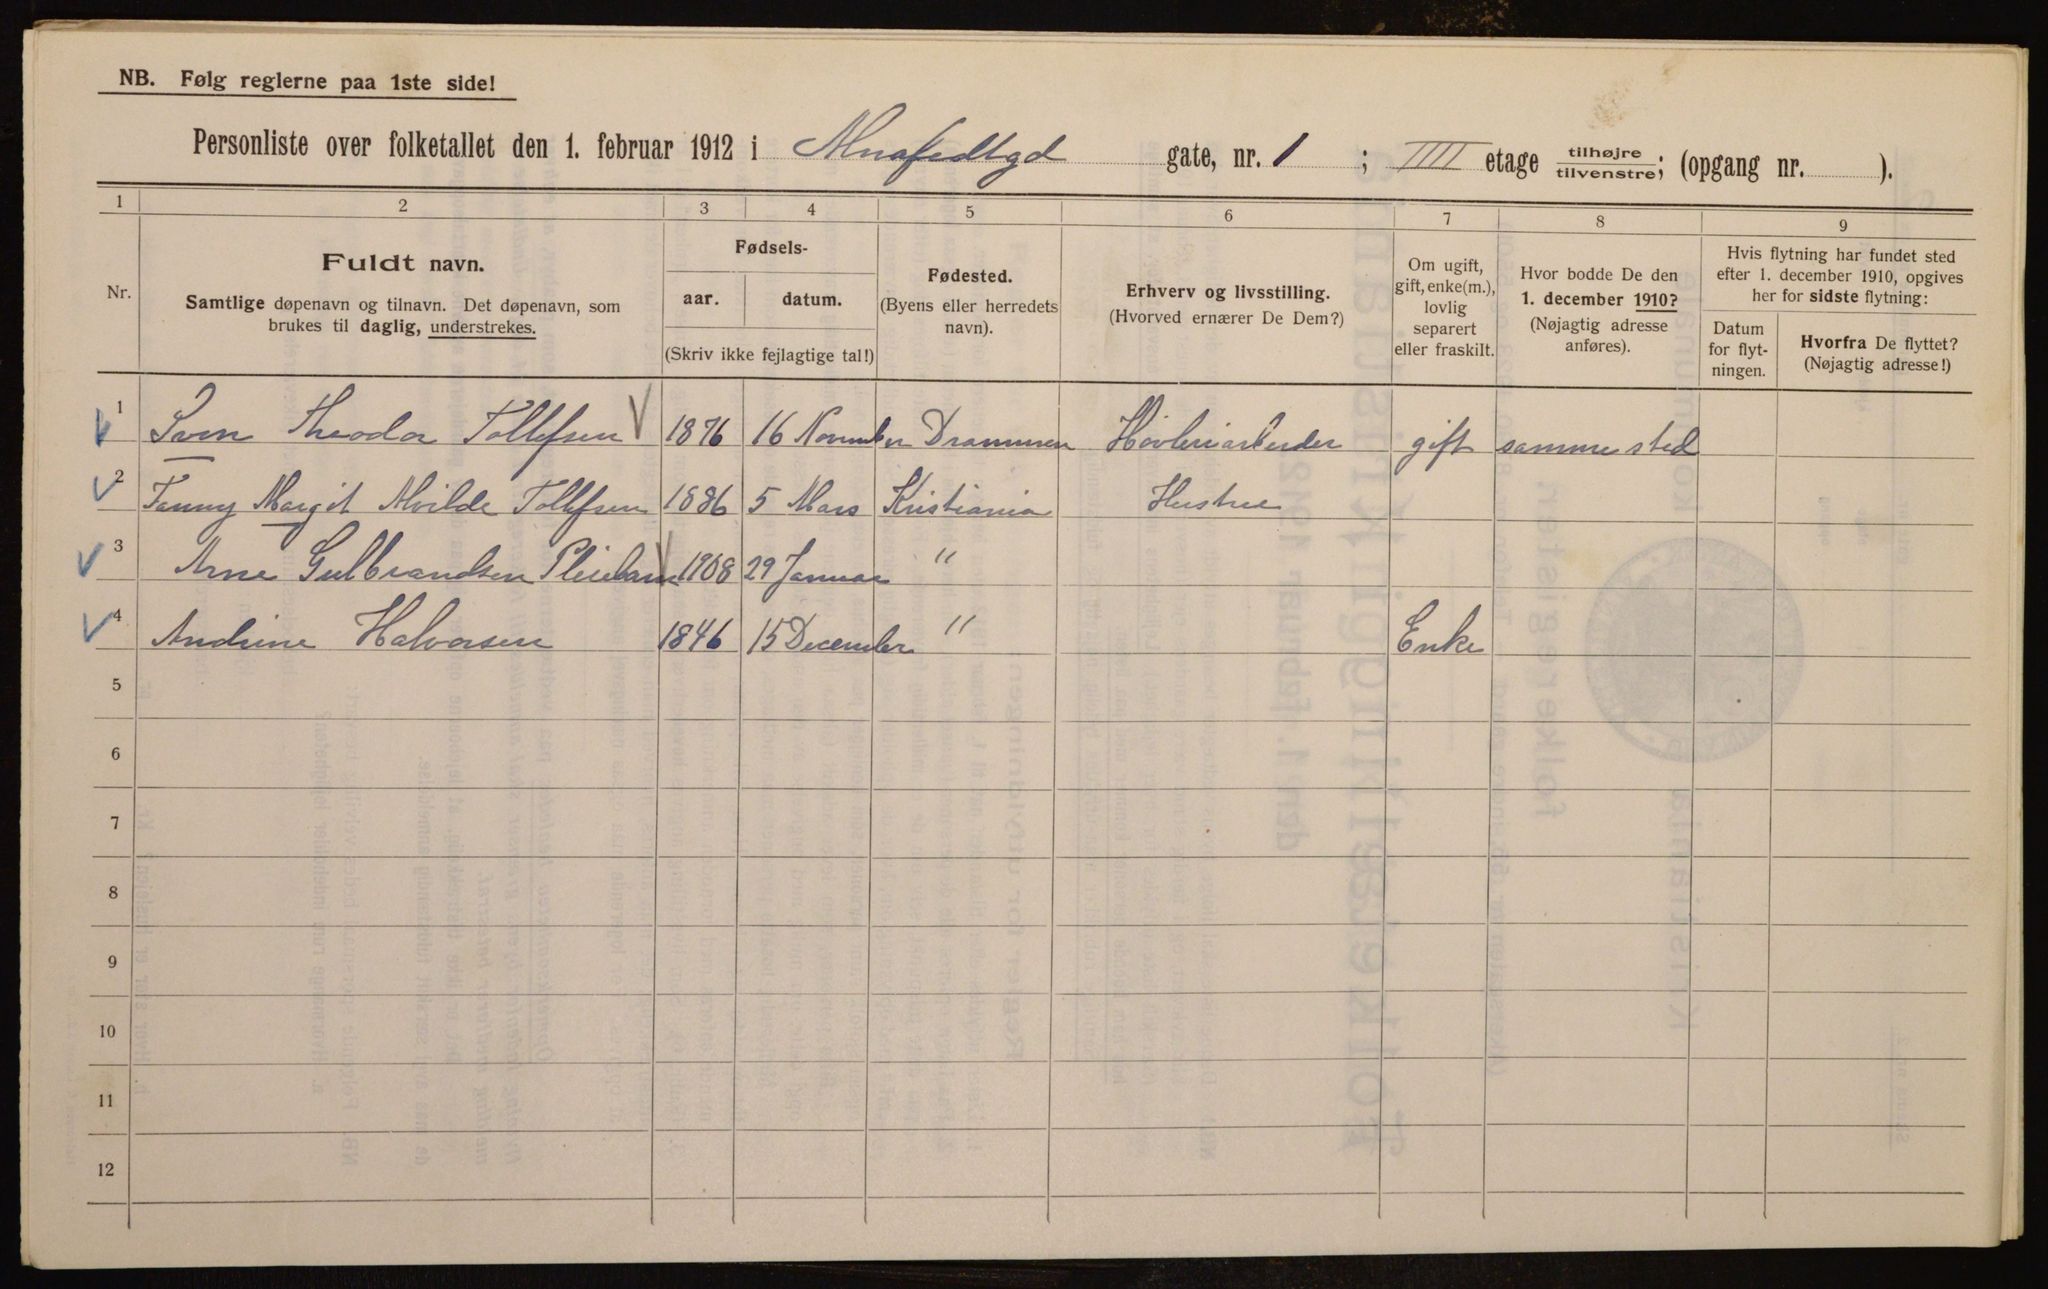 NB. Følg reglerne paa 1ste side!
Personliste over folketallet den 1. februar 1912 i Almafedtgd gate, nr. 1 ; IIII etage tilhøjre tilvenstre; (opgang nr. ).
1 2 3 4 5 6 7 8 9
Nr.
Fuldt navn.
Samtlige døpenavn og tilnavn. Det døpenavn, som
brukes til daglig, understrekes.
Fødsels-
aar. datum.
(Skriv ikke fejlagtige tal!)
Fødested.
(Byens eller herredets
navn).
Erhverv og livsstilling.
(Hvorved ernærer De Dem?)
Om ugift,
gift, enke(m.),
lovlig
separert
eller fraskilt.
Hvor bodde De den
1. december 1910?
(Nøjagtig adresse
anføres).
Hvis flytning har fundet sted
efter 1. december 1910, opgives
her for sidste flytning:
Datum
for flyt-
ningen.
Hvorfra De flyttet?
(Nøjagtig adresse!)
1 Sven Theodor Tollefsen 1876 16 November Drammen Høvleriarbeider gift samme sted
2 Fanny Margit Alvilde Tollefsen 1886 5 Mars Kristiania Hustru
3 Arne Gulbrandsen Pleiebarn 1908 29 Januar "
4 Andrine Halvorsen 1846 15 December " Enke
5
6
7
8
9
10
11
12